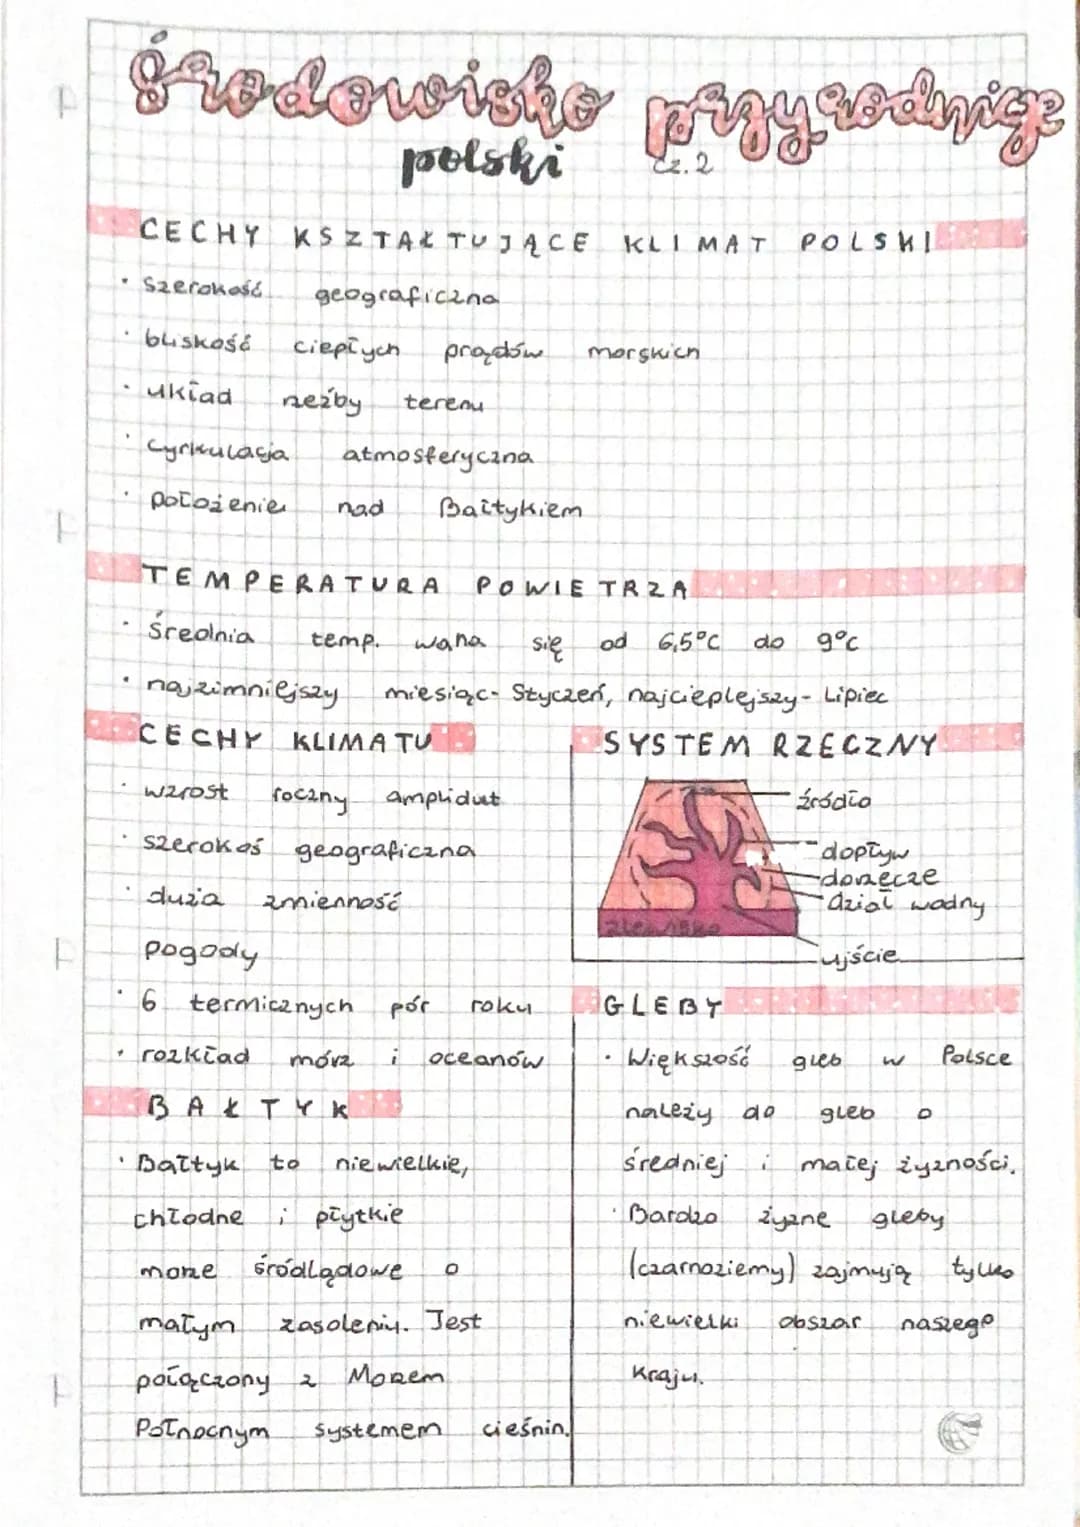 środowisko przyrodnicze
polski cz.2
CECHY KSZTAŁTUJĄCE KLIMAT POLSKI
· szerokość geograficzna
· bliskość ciepłych prądów morskich
· układ rzeźby terenu
· cyrkulacja atmosferyczna
· położenie nad Bałtykiem
TEMPERATURA POWIETRZA
· Średnia temp. waha się od 6,5°C do 9°C
· najzimniejszy miesiąc- Styczeń, najcieplejszy- Lipiec
CECHY KLIMATU
· wzrost roczny amplidut
· szerokoś geograficzna
· duża zmienność
pogody
· 6 termicznych pór roku
· rozkład mórz i oceanów
BAŁTYK
· Bałtyk to niewielkie,
chłodne i płytkie
morze śródlądowe o
małym zasoleniu. Jest
połączony z Morzem
Północnym systemem cieśnin.
SYSTEM RZECZNY
źródło
dopływ
dorzecze
dział wodny
zlewisko
ujście
GLEBY
· Większość gleb w Polsce
należy do gleb o
średniej i małej żyzności.
· Bardzo żyzne gleby
(czarnoziemy) zajmują tylko
niewielki obszar naszego
kraju.